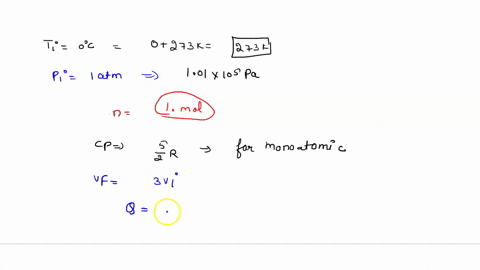 Ti° = 0°C = 0+273K = 273K
Pi° = 1 atm ⇒ 1.01 × 10⁵ Pa
n = 1. mol
CP ⇒ 5/2 R → for monoatomic
VF = 3Vi°
Q = .